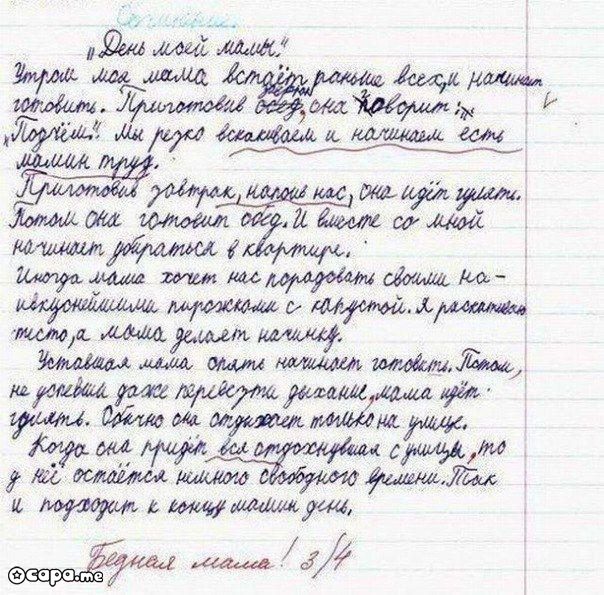 Сочинение.
„День моей мамы."
Утром моя мама встаёт раньше всех, и начинает
готовить. Приготовив обед, она говорит:
„Подъём". Мы резко вскакиваем и начинаем есть
мамин труд.
Приготовив завтрак, напоив нас, она идёт гулять.
Потом она готовит обед. И вместе со мной
начинает убираться в квартире.
Иногда мама хочет нас порадовать своими на-
ивкуснейшими пирожками с капустой. Я раскатываю
тесто, а мама делает начинку.
Уставшая мама опять начинает готовить. Потом,
не успевши даже перевезти дыхание, мама идёт
гулять. Обычно она отдыхает только на улице.
Когда она придёт вся отдохнувшая с улицы, то
у неё остаётся немного свободного времени. Так
и подходит к концу мамин день.
Бедная мама! 3/4
осара.me